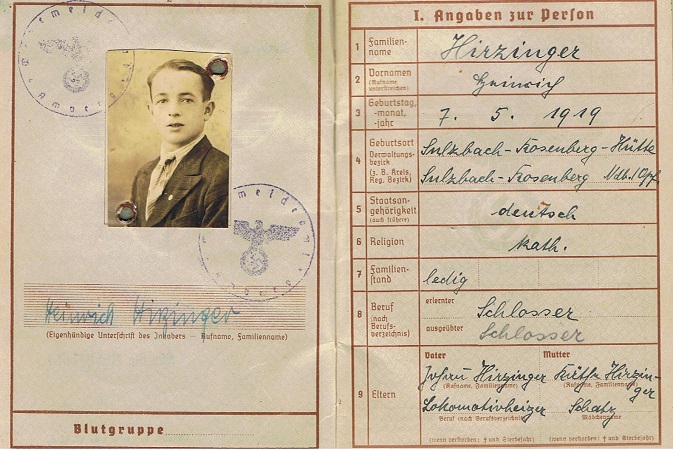 Wehrmeldeamt
Amberg
Wehrmeldeamt
Amberg
Heinrich Hirzinger
(Eigenhändige Unterschrift des Inhabers – Rufname, Familienname)
Blutgruppe
I. Angaben zur Person
1 Familien-
name
Hirzinger
2 Vornamen
(Rufname
unterstreichen)
Heinrich
3 Geburtstag,
-monat,
-jahr
7. 5. 1919
4 Geburtsort
Verwaltungs-
bezirk
(z. B. Kreis,
Reg. Bezirk)
Sulzbach-Rosenberg-Hütte
Sulzbach-Rosenberg Ndb./Opf.
5 Staatsan-
gehörigkeit
(auch frühere)
deutsch
6 Religion
kath.
7 Familien-
stand
ledig
8 Beruf
(nach
Berufs-
verzeichnis)
erlernter
Schlosser
ausgeübter
Schlosser
9 Eltern
Vater Mutter
Johann Hirzinger Käthe Hirzin-
ger
(Rufname, Familienname) (Rufname, Familienname)
Lokomotivheizer Schatz
Beruf (nach Berufsverzeichnis) Mädchenname
(wenn verstorben: † und Sterbejahr) (wenn verstorben: † und Sterbejahr)